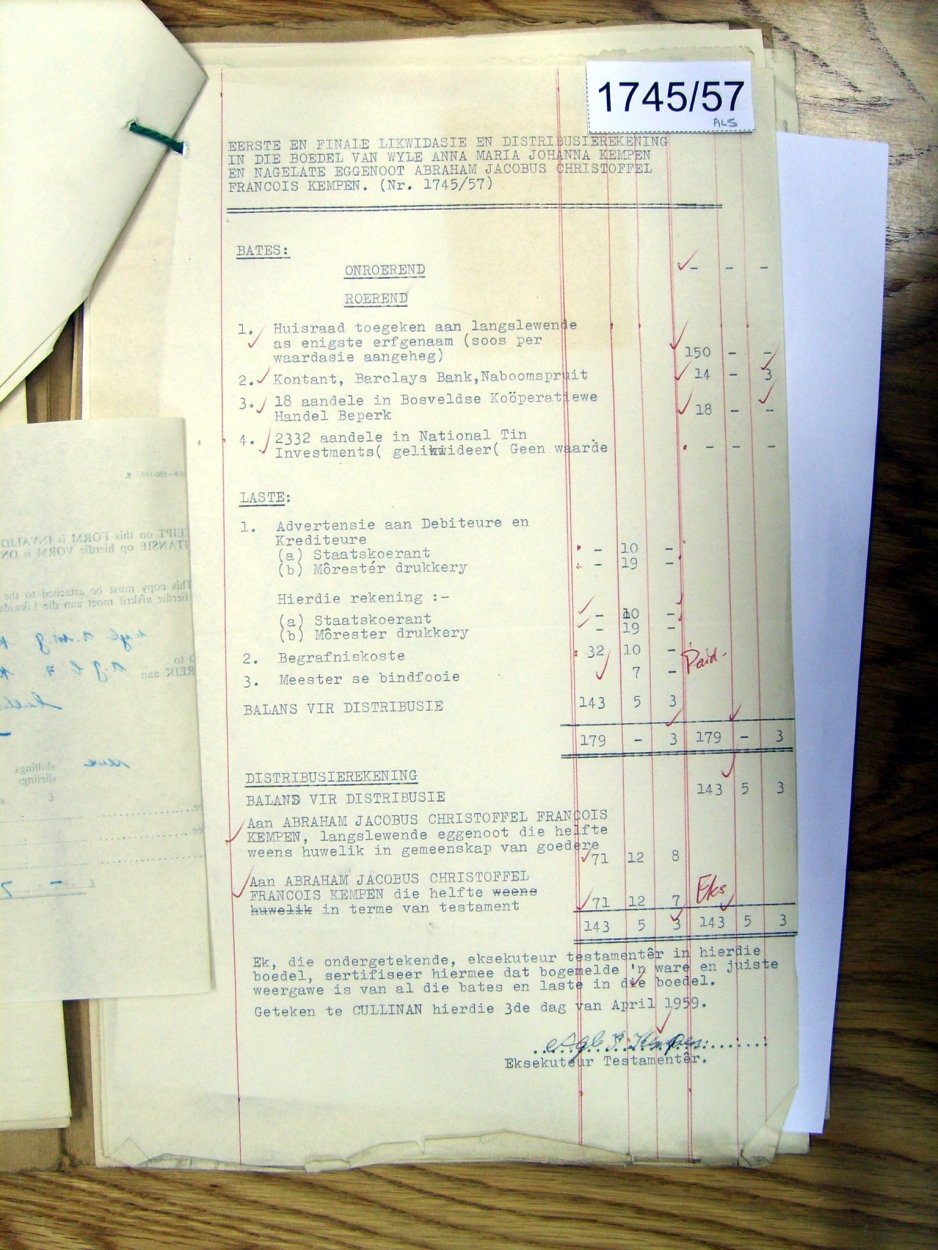 1745/57
ALS
EERSTE EN FINALE LIKWIDASIE EN DISTRIBUSIEREKENING
IN DIE BOEDEL VAN WYLE ANNA MARIA JOHANNA KEMPEN
EN NAGELATE EGGENOOT ABRAHAM JACOBUS CHRISTOFFEL
FRANCOIS KEMPEN. (Nr. 1745/57)
BATES:
ONROEREND - - -
ROEREND
1. Huisraad toegeken aan langslewende
as enigste erfgenaam (soos per
waardasie aangeheg) 150 - -
2. Kontant, Barclays Bank,Naboomspruit 14 - 3
3. 18 aandele in Bosveldse Koöperatiewe
Handel Beperk 18 - -
4. 2332 aandele in National Tin
Investments( gelikwideer( Geen waarde - - -
LASTE:
1. Advertensie aan Debiteure en
Krediteure
(a) Staatskoerant - 10 -
(b) Môrestér drukkery - 19 -
Hierdie rekening :-
(a) Staatskoerant - 10 -
(b) Môrester drukkery - 19 -
2. Begrafniskoste 32 10 - Paid.
3. Meester se bindfooie 7 -
BALANS VIR DISTRIBUSIE 143 5 3
179 - 3 179 - 3
DISTRIBUSIEREKENING
BALANS VIR DISTRIBUSIE 143 5 3
Aan ABRAHAM JACOBUS CHRISTOFFEL FRANCOIS
KEMPEN, langslewende eggenoot die helfte
weens huwelik in gemeenskap van goedere 71 12 8
Aan ABRAHAM JACOBUS CHRISTOFFEL
FRANCOIS KEMPEN die helfte weens Eks
huwelik in terme van testament 71 12 7
143 5 3 143 5 3
Ek, die ondergetekende, eksekuteur testamentêr in hierdie
boedel, sertifiseer hiermee dat bogemelde 'n ware en juiste
weergawe is van al die bates en laste in die boedel.
Geteken te CULLINAN hierdie 3de dag van April 1959.
Eksekuteur Testamentêr.